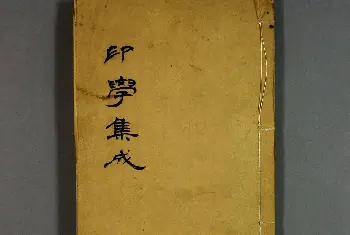 印學集成